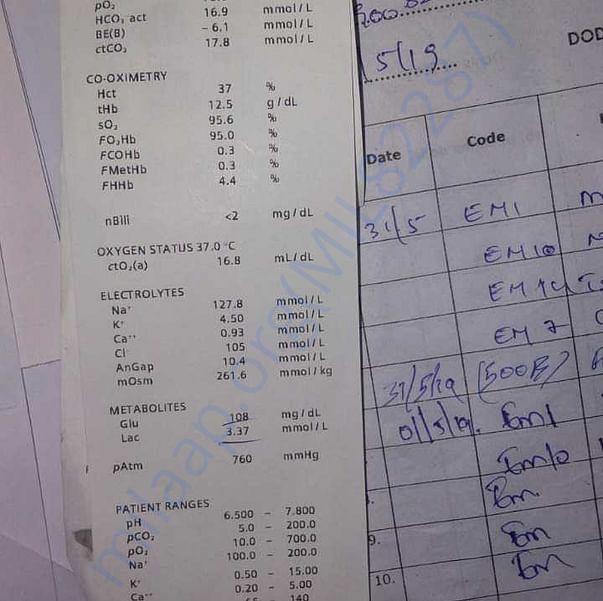 pO₂
HCO₃ act 16.9 mmol/L
BE(B) – 6.1 mmol/L
ctCO₂ 17.8 mmol/L
CO-OXIMETRY
Hct 37 %
tHb 12.5 g/dL
sO₂ 95.6 %
FO₂Hb 95.0 %
FCOHb 0.3 %
FMetHb 0.3 %
FHHb 4.4 %
nBili <2 mg/dL
OXYGEN STATUS 37.0 °C
ctO₂(a) 16.8 mL/dL
ELECTROLYTES
Na⁺ 127.8 mmol/L
K⁺ 4.50 mmol/L
Ca⁺⁺ 0.93 mmol/L
Cl⁻ 105 mmol/L
AnGap 10.4 mmol/L
mOsm 261.6 mmol/kg
METABOLITES
Glu 108 mg/dL
Lac 3.37 mmol/L
pAtm 760 mmHg
PATIENT RANGES
pH 6.500 – 7.800
pCO₂ 5.0 – 200.0
pO₂ 10.0 – 700.0
Na⁺ 100.0 – 200.0
K⁺ 0.50 – 15.00
Ca⁺⁺ 0.20 – 5.00
140
5/19
DOD
Date Code
31/5 EM1
EM10
EM 7
31/5/19 (500B)
01/5/19. Em1
Em10
Em
9. Em
10. Em
milaap.org(MILS62287)